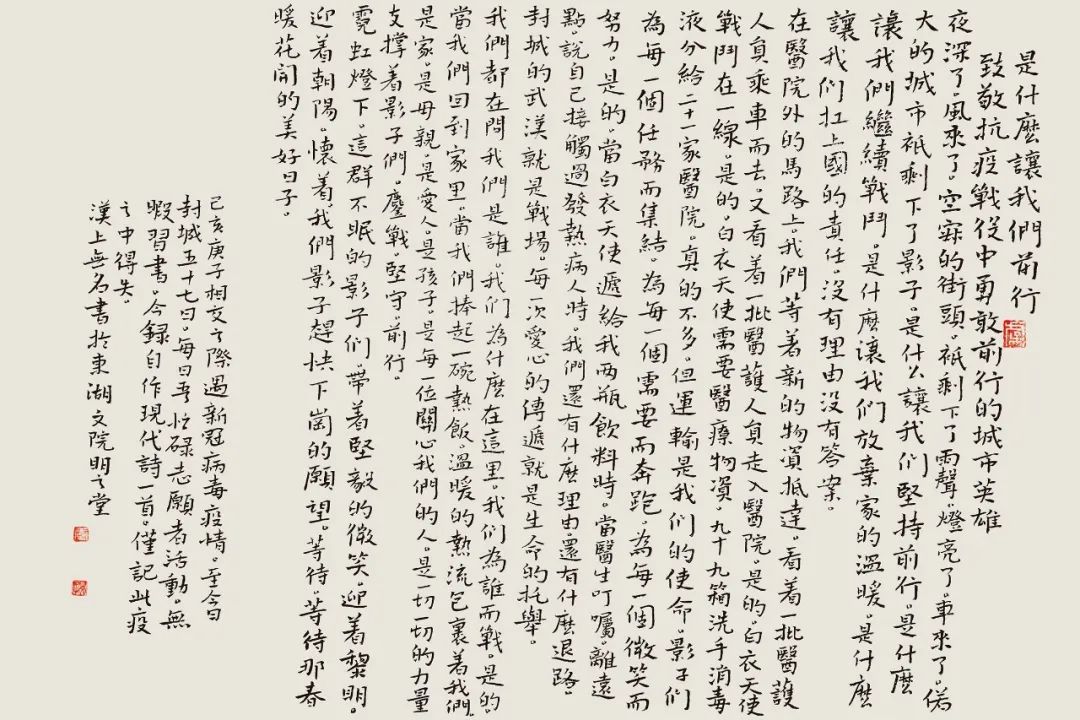 是什麽讓我們前行
致敬抗疫戰役中勇敢前行的城市英雄
夜深了。風來了。空寂的街頭。祇剩下了雨聲。燈亮了。車來了。偌
大的城市祇剩下了影子。是什么讓我们堅持前行。是什麽
讓我們繼續戰鬥。是什麽讓我们放棄家的溫暖。是什麽
讓我們扛上國的責任。沒有理由沒有答案。
在醫院外的馬路上。我們等着新的物資抵達。看着一批醫護
人員乘車而去。又看着一批醫護人員走入醫院。是的。白衣天使
戰鬥在一線。是的。白衣天使需要醫療物資。九十九箱洗手消毒
液分給二十一家醫院。真的不多。但運輸是我们的使命。影子们
為每一個任務而集結。為每一個需要而奔跑。為每一個微笑而
努力。是的。當白衣天使遞給我两瓶飲料時。當醫生叮囑。離遠
點。說自己接觸過發熱病人時。我們還有什麽理由。還有什麽退路。
封城的武漢就是戰場。每一次愛心的傳遞就是生命的托舉。
我們都在問我們是誰。我们為什麽在這里。我们為誰而戰。是的。
當我們回到家里。當我們捧起一碗熱飯。溫暖的熱流包裹着我們。
是家。是母親。是愛人。是孩子。是每一位關心我們的人。是一切一切的力量
支撑着影子們。鏖戰。堅守。前行。
霓虹燈下。這群不眠的影子们。帶着堅毅的微笑。迎着黎明。
迎着朝陽。懷着我們影子趕快下崗的願望。等待。等待那春
暖花開的美好日子。
己亥庚子相交之際遇新冠病毒疫情。至今日
封城五十七日。每日吾忙碌志願者活動。無
暇習書。今録自作現代詩一首。僅記此疫
之中得失。
漢上無名書於東湖文院明之堂